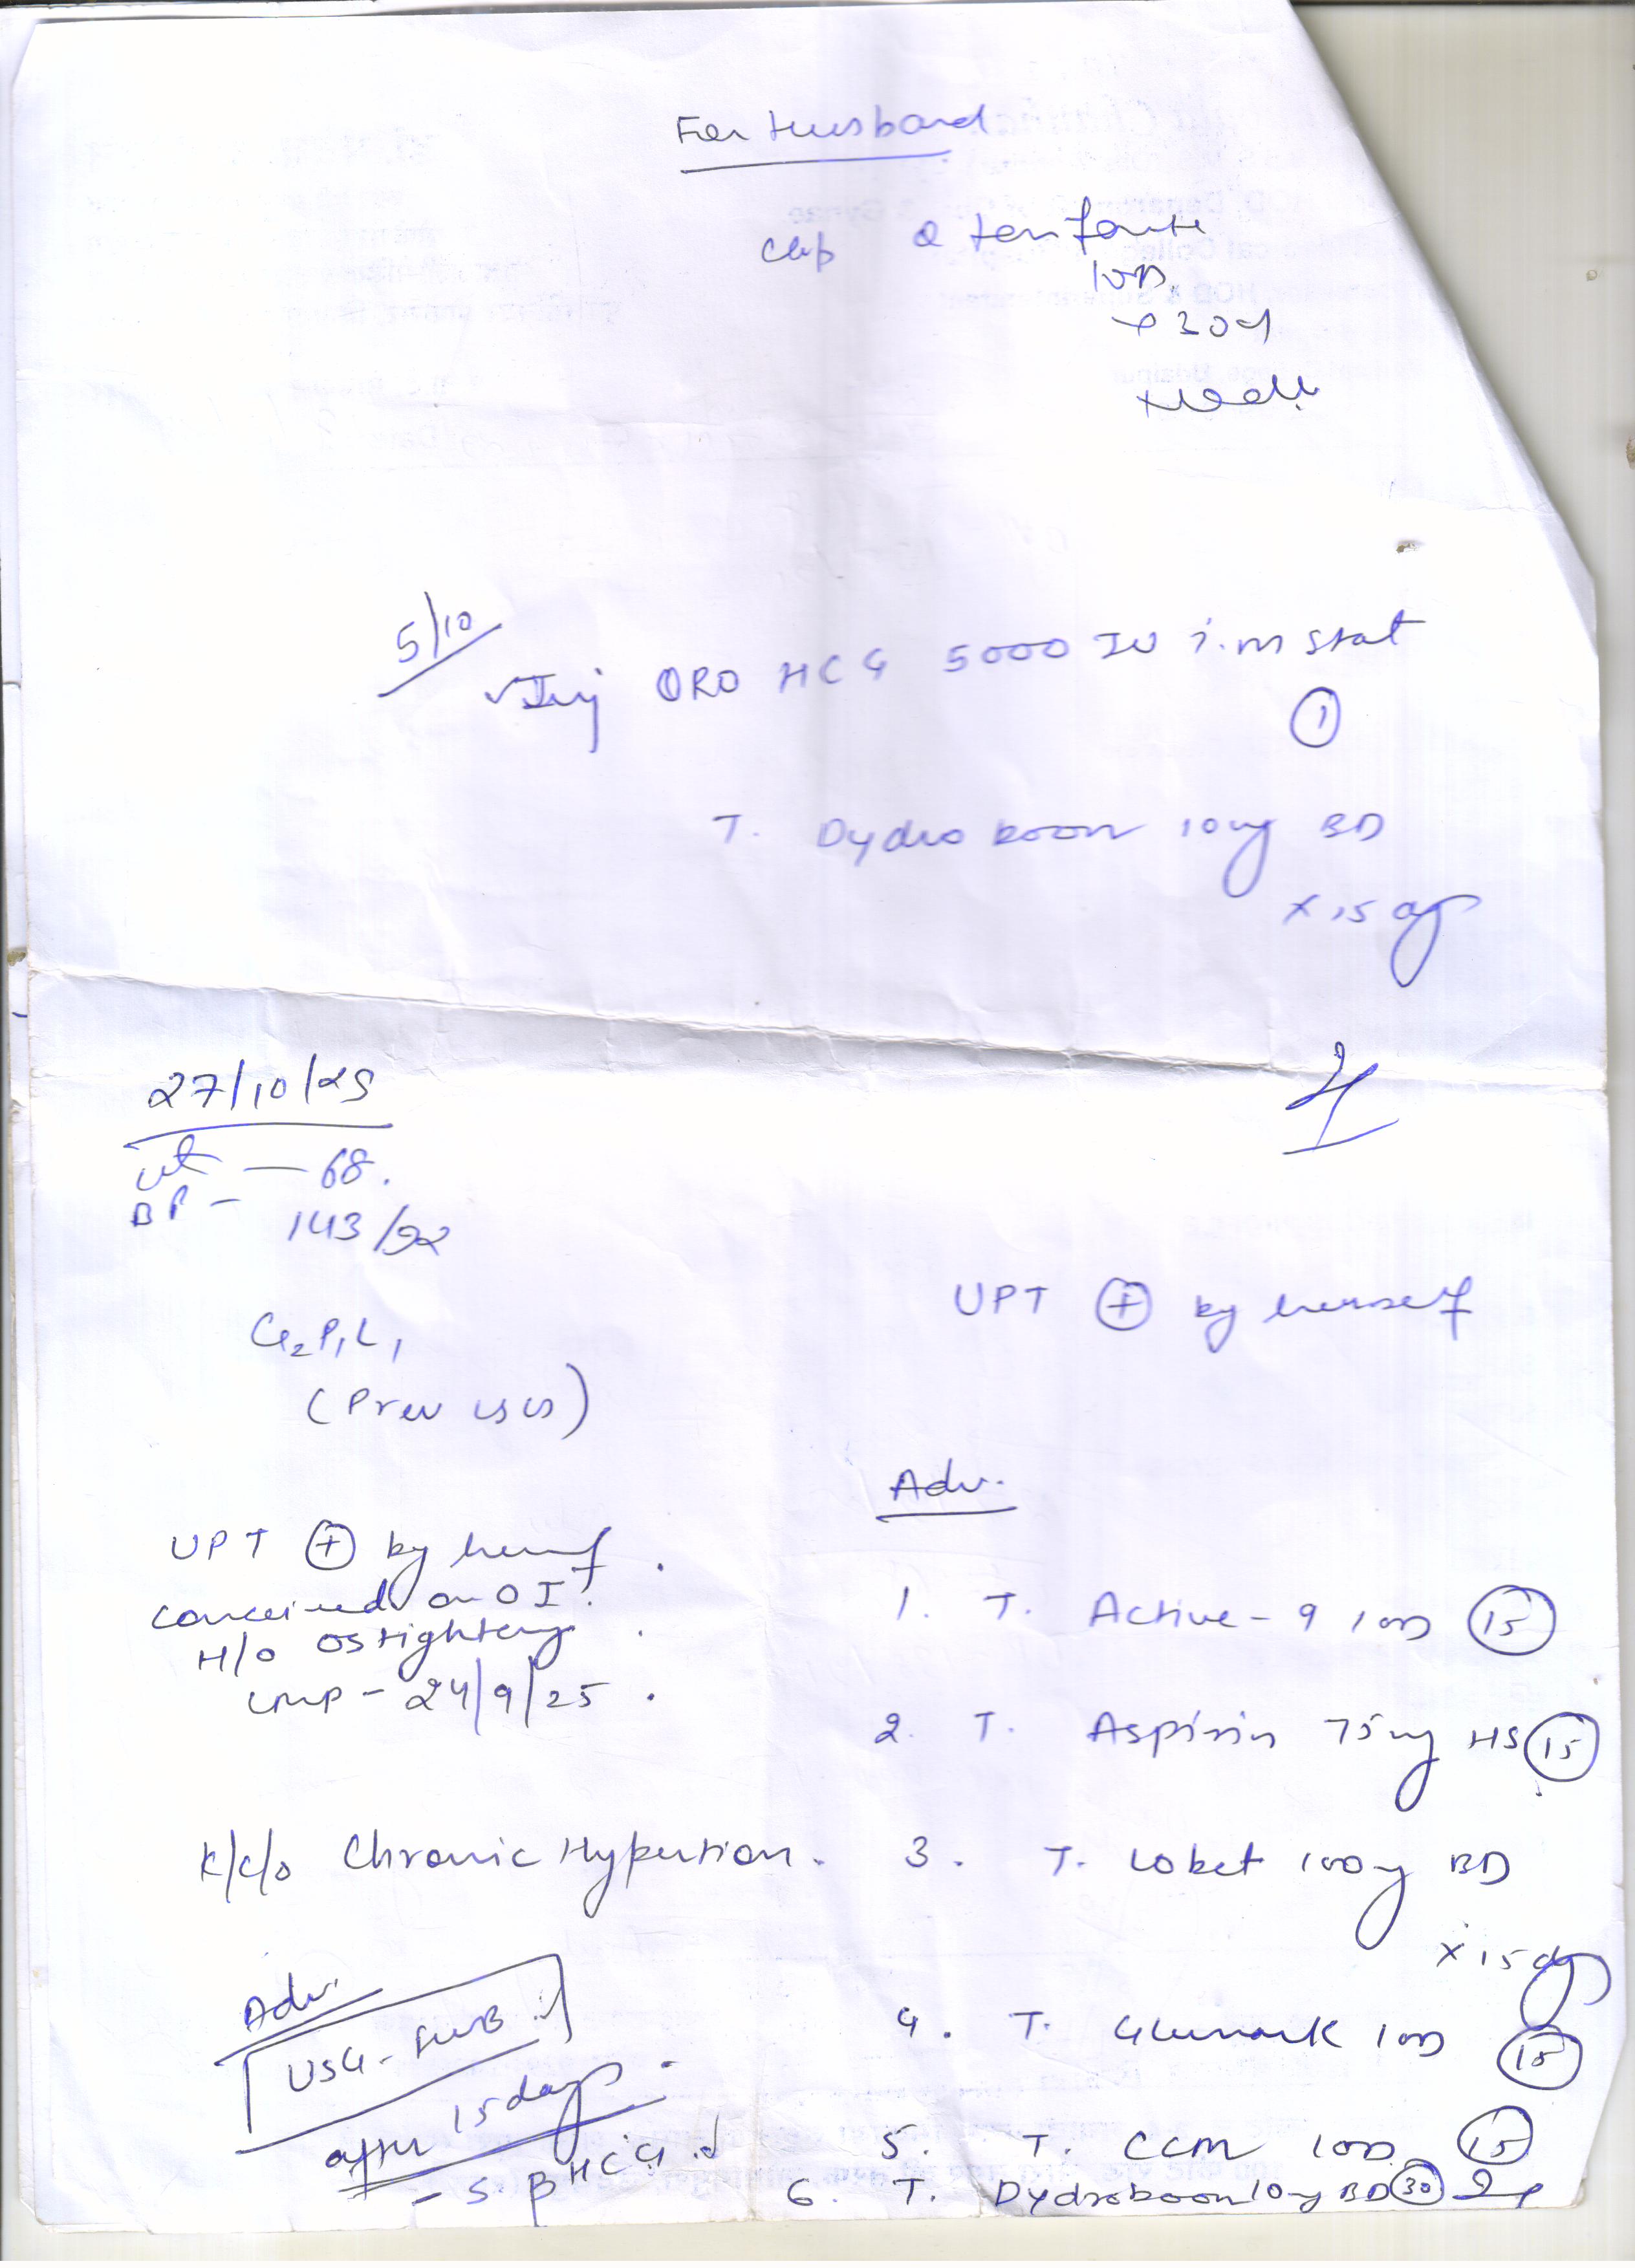 For Husband
Cap Q ten forte
1OD
x 30 d
5/10
Inj ORO HCG 5000 IU i.m stat
1
T. Dydroboon 10mg BD
x 15 dy
27/10/25
wt — 68.
BP - 143/92
G2P1L1
(Prev LSCS)
UPT + by herself
UPT + by herself.
conceived on OI.
H/o OS tightening.
LMP - 24/9/25.
K/c/o Chronic Hypertion.
Adv.
USG - FWB
after 15 days.
- S. β HCG
Adv.
1. T. Active-9 1OD 15
2. T. Aspirin 75mg HS 15
3. T. Lobet 100mg BD
x 15 dy
4. T. 1OD 15
5. T. CCM 1OD 15
6. T. Dydroboon 10mg BD 30